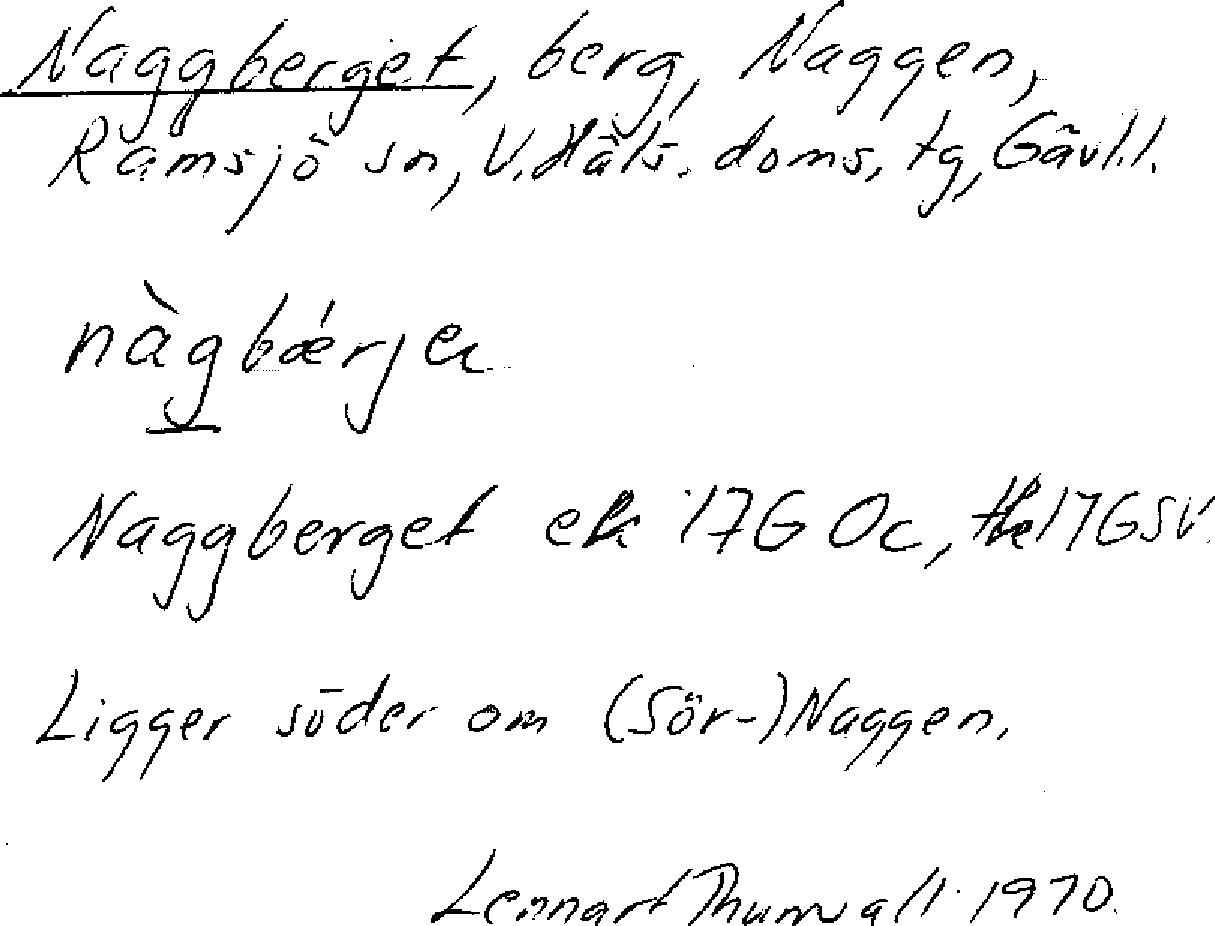 Naggberget, berg, Naggen,
Ramsjö sn, V. Häls. doms. tg, Gävl.l.
nàgbǽrjeɩ
Naggberget ek 17G 0c, tk 17G SV.
Ligger söder om (Sör-)Naggen.
Lennart Thunwall 1970.